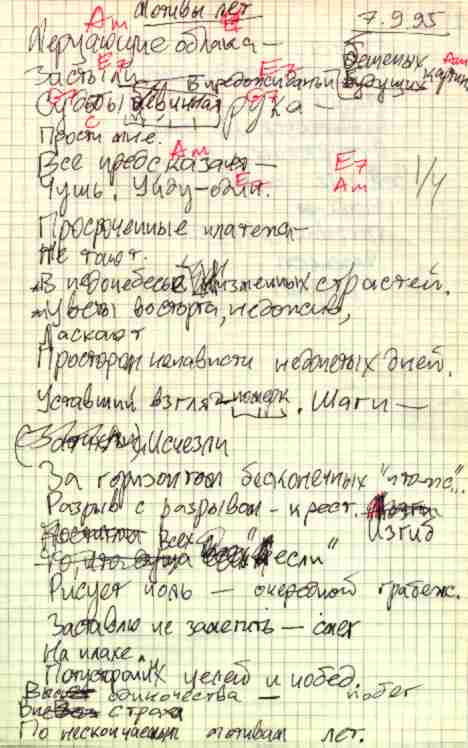 Мотивы лет
7.9.95
Am E
Дерущиеся облака —
E7 E7 Am
Застыли в предожиданьи будущих картин
бешеных
E7 G7
Судьбы невинная рука —
C
Прости мне.
Am E7
Все предсказания —
E7 Am
Чушь. Уйду один.
1/4
Просроченные платежи
Не тают.
В поднебесье низменных страстей.
Цветы восторга, недожив,
Ласкают
Простором ненависти недопетых дней.
Уставший взгляд померк. Шаги —
Исчезли
За горизонтом бесконечных "что-ж"...
Разрыв с разрывом — крест.
Изгиб
всех "если"
Рисует ноль — очередной грабёж.
Заставлю не заметить — снег
На плахе.
Полустрогих целей и побед.
одиночества — побег
страха
По нескончаемым мотивам лет.